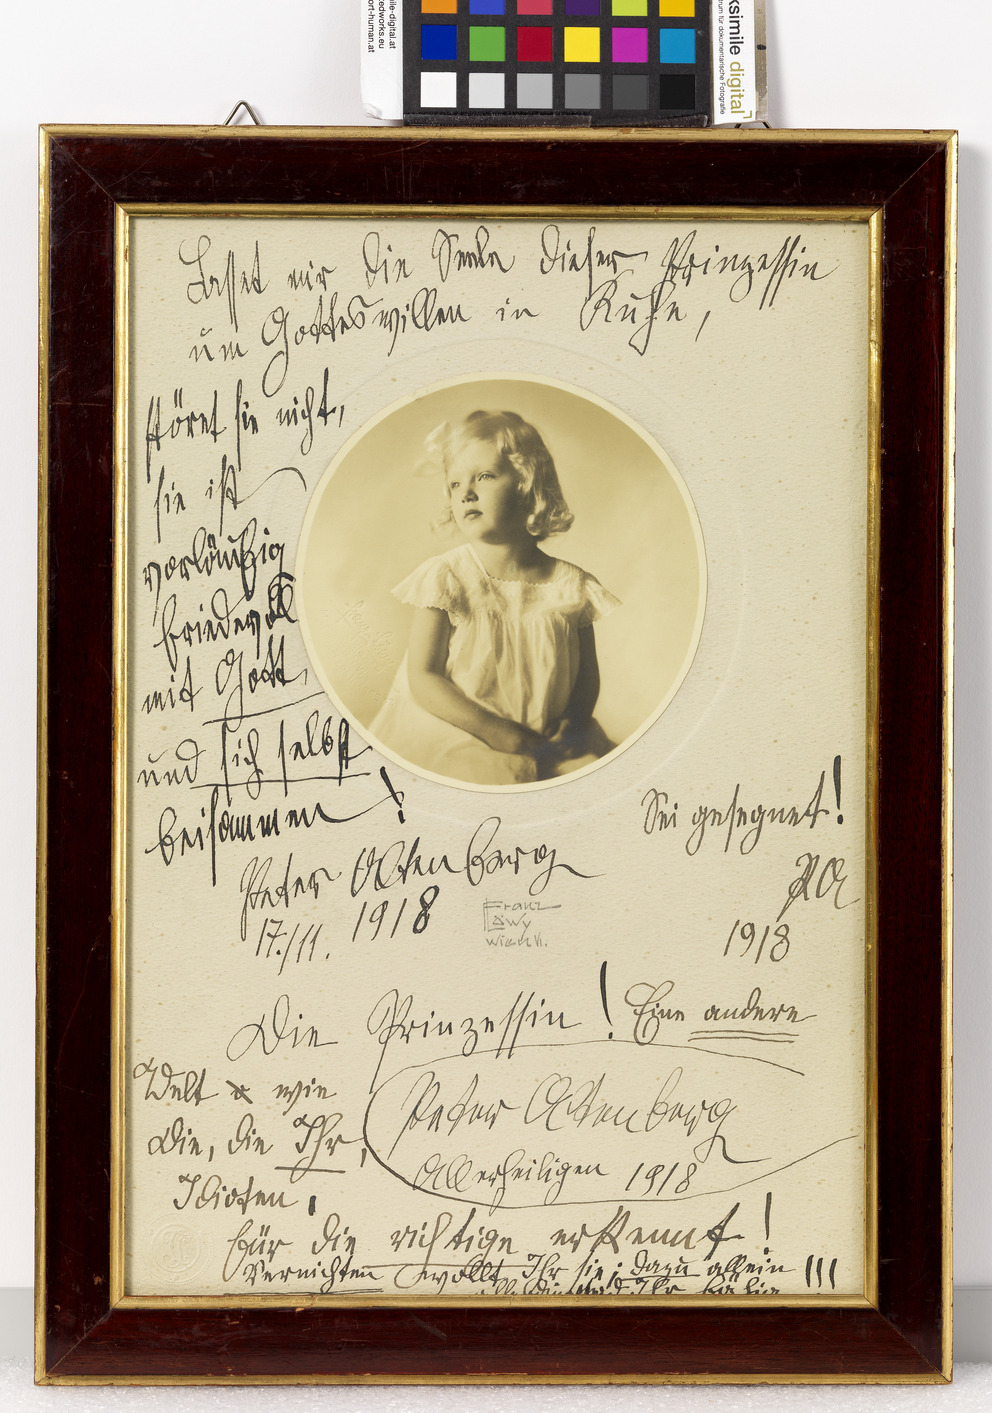 mile-digital.at
edworks.eu
ort-human.at
ksimile digital
trum für dokumentarische Fotografie
Lasset mir die Seele dieser Prinzessin
um Gotteswillen in Ruhe,
störet sie nicht,
sie ist
vorläufig
friedevoll
mit Gott,
und sich selbst
beisammen!
Peter Altenberg
17./11. 1918
Franz
Löwy
Wien VI.
Sei gesegnet!
PA
1918
Die Prinzessin! Eine andere
Welt wie
Die, die Ihr,
Idioten,
Peter Altenberg
Allerheiligen 1918
für die richtige erkennt!
Vernichten wollt Ihr sie; dazu allein !!!
seid Ihr fähig